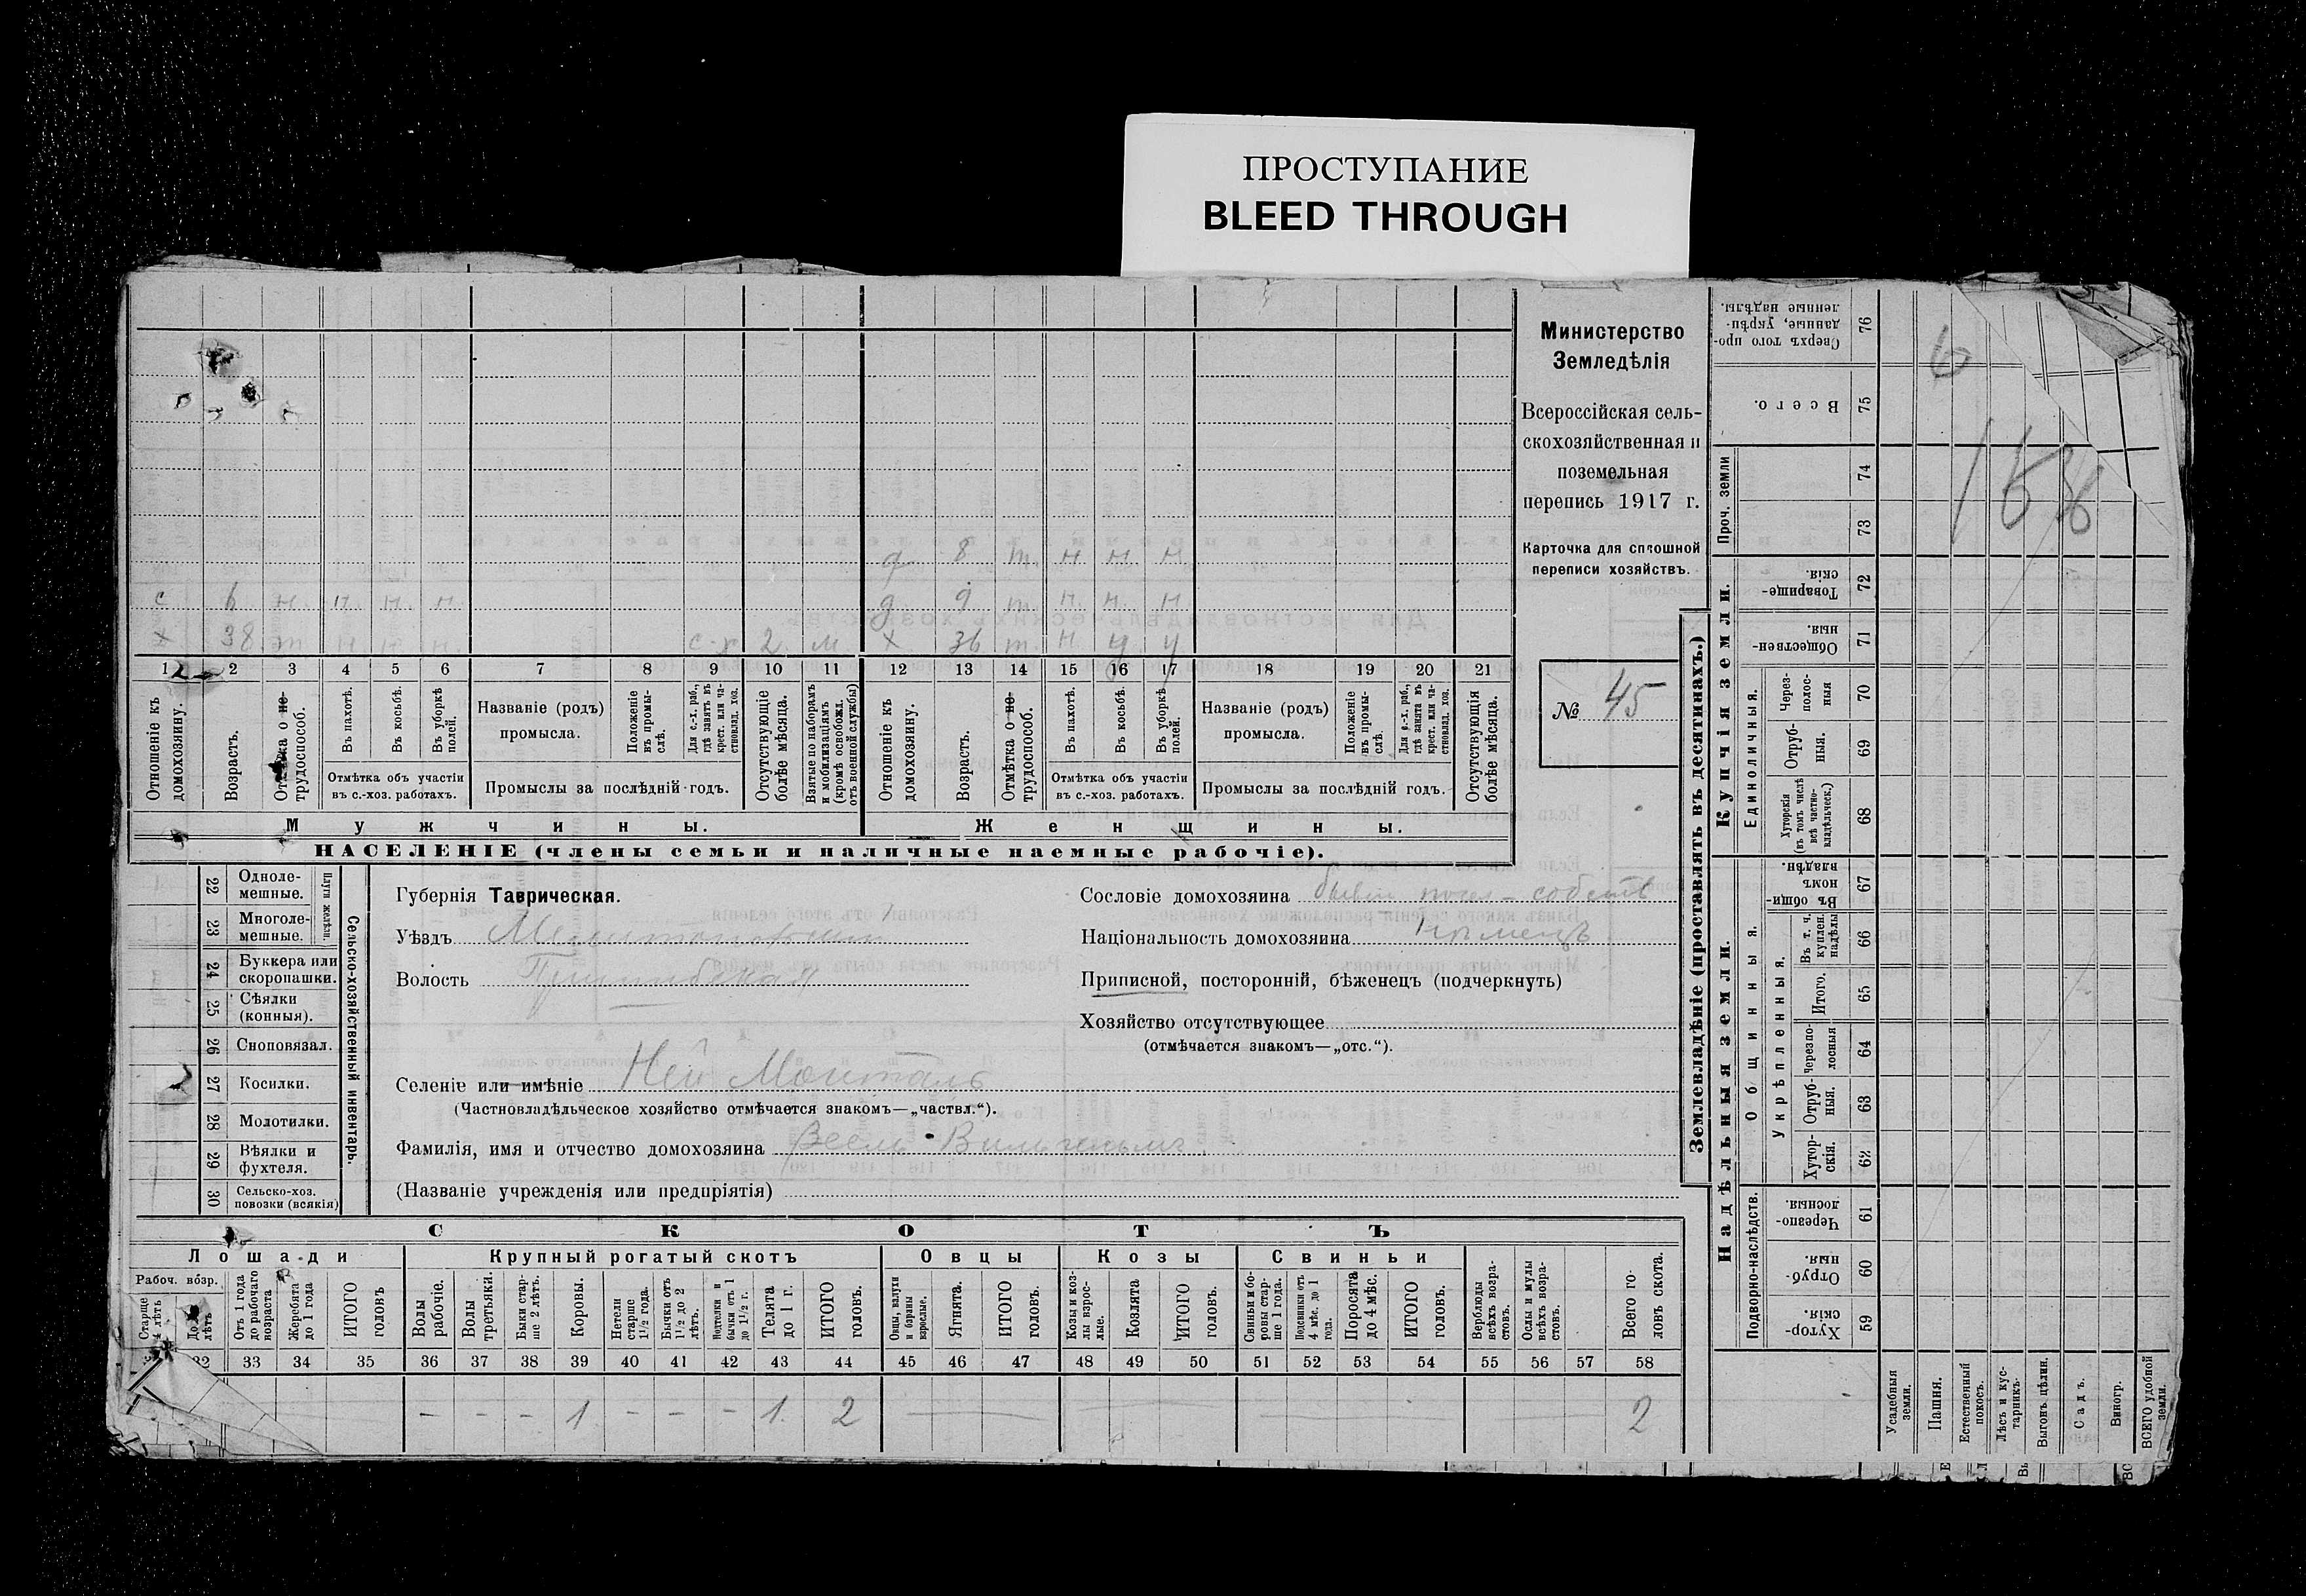 ПРОСТУПАНИЕ
BLEED THROUGH
Министерство
Земледѣлія
Всероссійская сель-
скохозяйственная и
поземельная
перепись 1917 г.
Карточка для сплошной
переписи хозяйствъ.
№ 45
д 8 т. н н. н
с 6 н. н. н. н. д 9 т. н. н. н.
х 38 т. н н н. с-х 2 м х 36 т. н ч ч
1 2 3 4 5 6 7 8 9 10 11 12 13 14 15 16 17 18 19 20 21
Отношеніе къ домохозяину.
Возрастъ.
Отмѣтка о не-трудоспособ.
Въ пахотѣ.
Въ косьбѣ.
Въ уборкѣ полей.
Отмѣтка объ участіи
въ с.-хоз. работахъ.
Названіе (родъ)
промысла.
Положеніе въ промы-слѣ.
Для с.-х. раб., гдѣ занятъ въ крест. или ча-стновлад. хоз.
Промыслы за послѣдній годъ.
Отсутствующіе болѣе мѣсяца.
Взятые по наборамъ и мобилизаціямъ (кромѣ освобожд. отъ военной службы)
Отношеніе къ домохозяину.
Возрастъ.
Отмѣтка о не-трудоспособ.
Въ пахотѣ.
Въ косьбѣ.
Въ уборкѣ полей.
Отмѣтка объ участіи
въ с.-хоз. работахъ.
Названіе (родъ)
промысла.
Положеніе въ промы-слѣ.
Для с.-х. раб., гдѣ занята въ крест. или ча-стновлад. хоз.
Промыслы за послѣдній годъ.
Отсутствующія болѣе мѣсяца.
Мужчины.
Женщины.
НАСЕЛЕНІЕ (члены семьи и наличные наемные рабочіе).
22 Одноле-мешные.
23 Многоле-мешные.
Плуги желѣзн.
24 Буккера или скоропашки.
25 Сѣялки (конныя).
26 Сноповязал.
27 Косилки.
28 Молотилки.
29 Вѣялки и фухтеля.
30 Сельско-хоз. повозки (всякія)
Сельско-хозяйственный инвентарь.
Губернія Таврическая.
Уѣздъ Мелитопольскій
Волость Пришибская
Селеніе или имѣніе Ней Монталь
(Частновладѣльческое хозяйство отмѣчается знакомъ—„частвл.“).
Фамилія, имя и отчество домохозяина Вильгельмъ
(Названіе учрежденія или предпріятія)
Сословіе домохозяина бывш посел-собств
Національность домохозяина Нѣмецъ
Приписной, посторонній, бѣженецъ (подчеркнуть)
Хозяйство отсутствующее
(отмѣчается знакомъ—„отс.“).
СКОТЪ
Лошади
Крупный рогатый скотъ
Овцы
Козы
Свиньи
Рабоч. возр.
Старше 4 лѣтъ
До лѣтъ
Отъ 1 года до рабочаго возраста
Жеребята до 1 года
ИТОГО головъ
Волы рабочіе.
Волы третьяки.
Быки стар-ше 2 лѣтъ.
Коровы.
Нетели старше 1 1/2 года.
Бычки отъ 1 1/2 до 2 лѣтъ.
Подтелки и бычки отъ 1 до 1 1/2 г.
Телята до 1 г.
ИТОГО головъ.
Овцы, валухи и бараны взрослые.
Ягнята.
ИТОГО головъ.
Козы и коз-лы взрос-лые.
Козлята
ИТОГО головъ.
Свиньи и бо-ровы стар-ше 1 года.
Подсвинки отъ 4 мѣс. до 1 года.
Поросята до 4 мѣс.
ИТОГО головъ.
Верблюды всѣхъ возра-стовъ.
Ослы и мулы всѣхъ возра-стовъ.
Всего го-ловъ скота.
32 33 34 35 36 37 38 39 40 41 42 43 44 45 46 47 48 49 50 51 52 53 54 55 56 57 58
– – – 1 – – – 1. 2 2
Землевладѣніе (проставлять въ десятинахъ.)
Надѣльныя земли.
Купчія земли.
Проч. земли
Подворно-наслѣдств.
Общинныя.
Укрѣпленныя.
Единоличныя.
76 Сверхъ того про-данные, укрѣп-ленные надѣлы.
75 Всего.
74
73
72 Товарище-скія.
71 Обществен-ныя.
70 Через-полос-ныя
69 Отруб-ныя.
68 Хуторскія (въ томъ числѣ всѣ частно-владѣльческ.)
67 Въ общи-номъ владѣн.
66 Въ т. ч. куплен. надѣлы
65 Итого.
64 Черезпо-лосныя
63 Отруб-ныя.
62 Хутор-скія.
61 Черезпо-лосныя.
60 Отруб-ныя.
59 Хутор-скія.
Усадебныя земли.
Пашня.
Естественный покосъ.
Лѣсъ и кус-тарникъ.
Выгонъ, цѣлин.
Садъ.
Виногр.
ВСЕГО удобной земли.
6